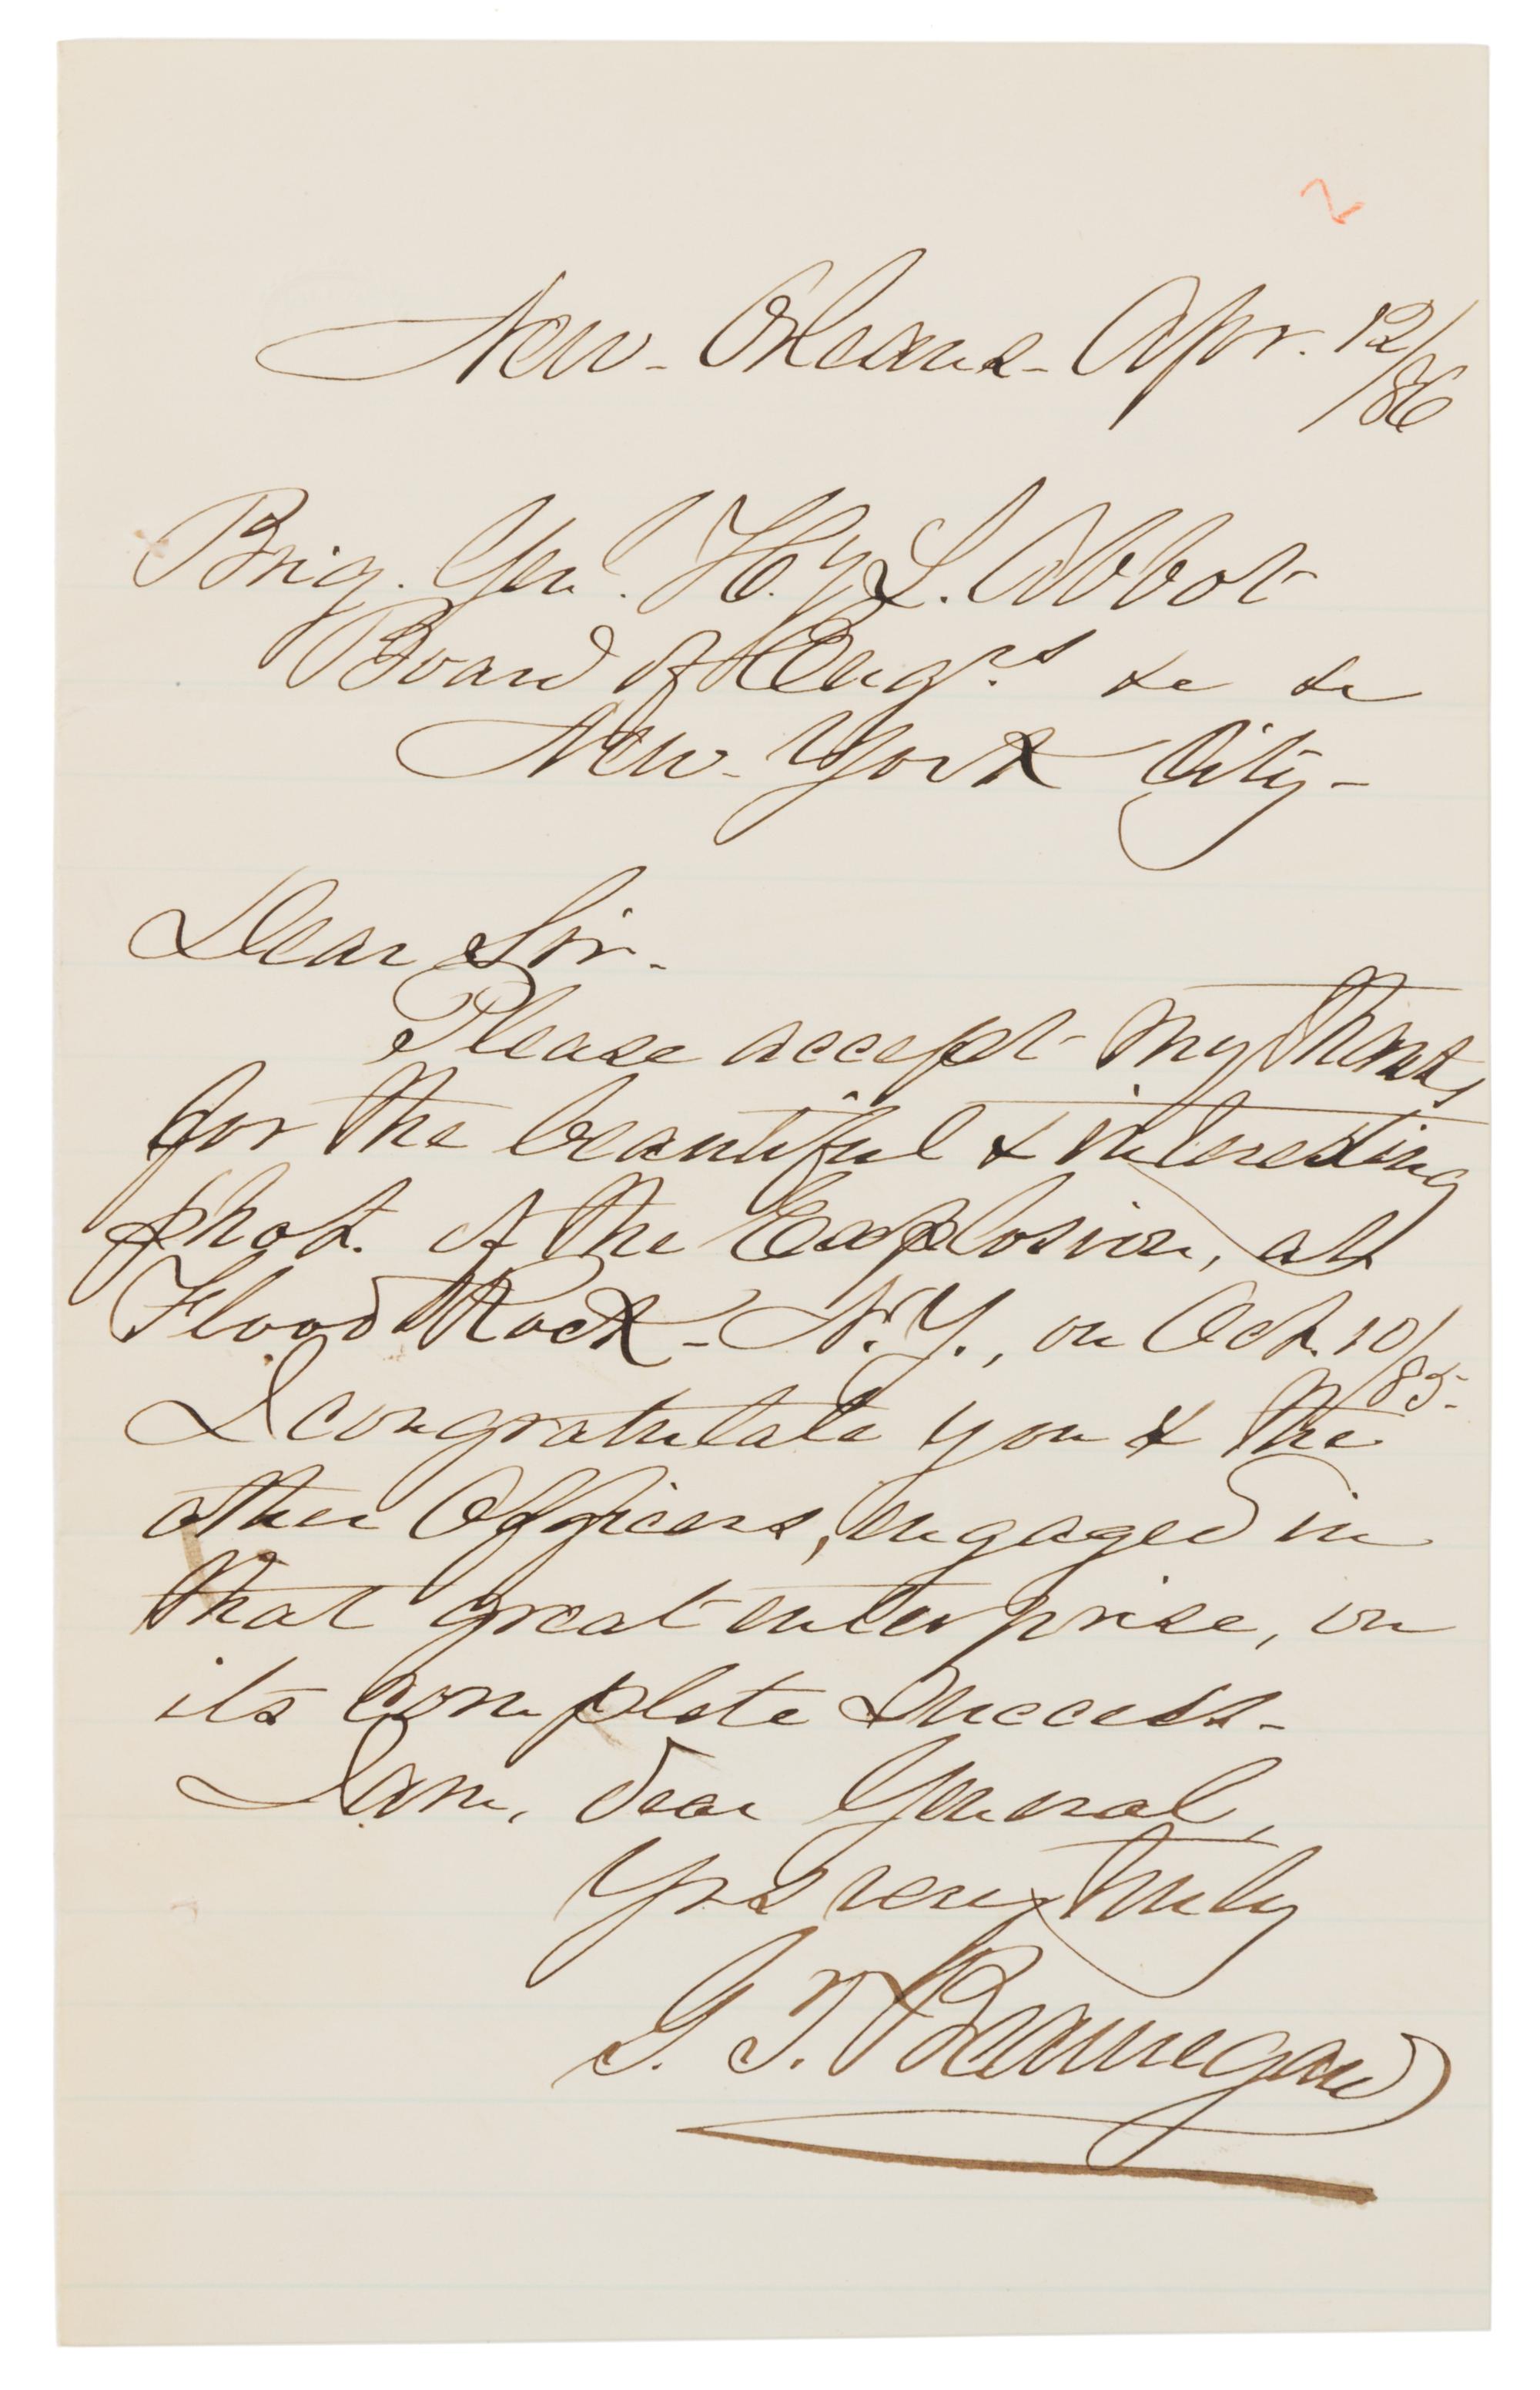 New-Orleans- Apr. 12/86
Brig. Gen'l. H'y. L. Abbot
Board of Engrs. &c &c
New-York City-
Dear Sir-
Please accept my thanks
for the beautiful & interesting
phot. of the Explosion, at
Flood Rock- N.Y., on Oct. 10/85-
I congratulate you & the
other Officers, engaged in
that great enterprise, on
its complete success-
I am, dear General,
Yrs very truly
G. T. Beauregard